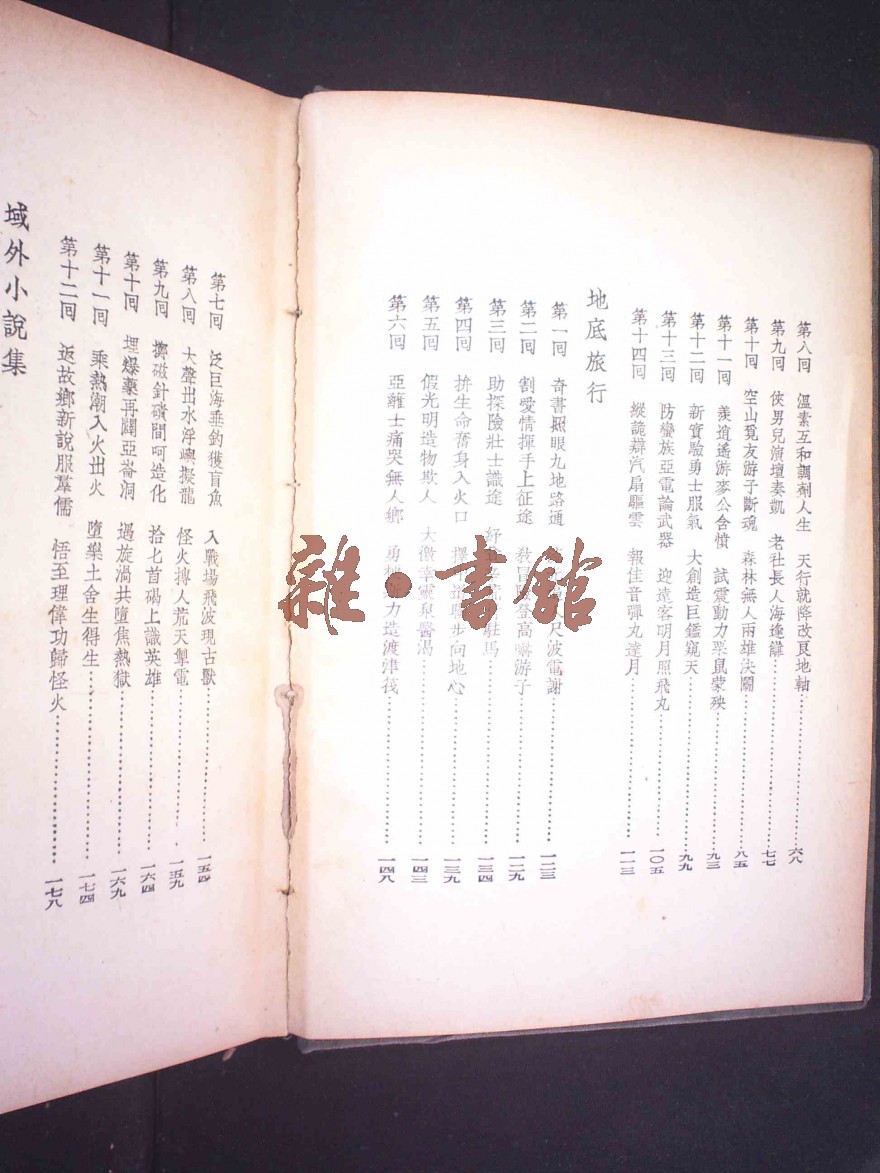 第八回 溫素互和調劑人生 天行就降改良地軸⋯⋯六八
第九回 俠男兒演壇奏凱 老社長人海逢讎⋯⋯七七
第十回 空山覓友游子斷魂 森林無人兩雄決鬬⋯⋯八五
第十一回 羨逍遙游麥公含憤 試震動力栗鼠蒙殃⋯⋯九三
第十二回 新實驗勇士服氣 大創造巨鑑窺天⋯⋯九九
第十三回 防蠻族亞電論武器 迎遠客明月照飛丸⋯⋯一〇五
第十四回 縱詭辯汽扇驅雲 報佳音彈丸達月⋯⋯一一三
地底旅行
第一回 奇書照眼九地路通 尺波電謝⋯⋯一二三
第二回 割愛情揮手上征途 登高嚇游子⋯⋯一二九
第三回 助探險壯士識途 駐馬⋯⋯一三四
第四回 拚生命奮身入火口 步向地心⋯⋯一三九
第五回 假光明造物欺人 大徼幸靈泉醫渴⋯⋯一四三
第六回 亞離士痛哭無人鄉 勇 力造渡津筏⋯⋯一四八
第七回 泛巨海垂釣獲盲魚 入戰場飛波現古獸⋯⋯一五四
第八回 大聲出水浮嶼擬龍 怪火搏人荒天掣電⋯⋯一五九
第九回 擲磁針礩間呵造化 拾匕首碣上識英雄⋯⋯一六四
第十回 埋爆藥再闢亞崙洞 遇旋渦共墮焦熱獄⋯⋯一六九
第十一回 乘熱潮入火出火 墮樂土舍生得生⋯⋯一七四
第十二回 返故鄉新說服羣儒 悟至理偉功歸怪火⋯⋯一七八
域外小說集
雜·書館